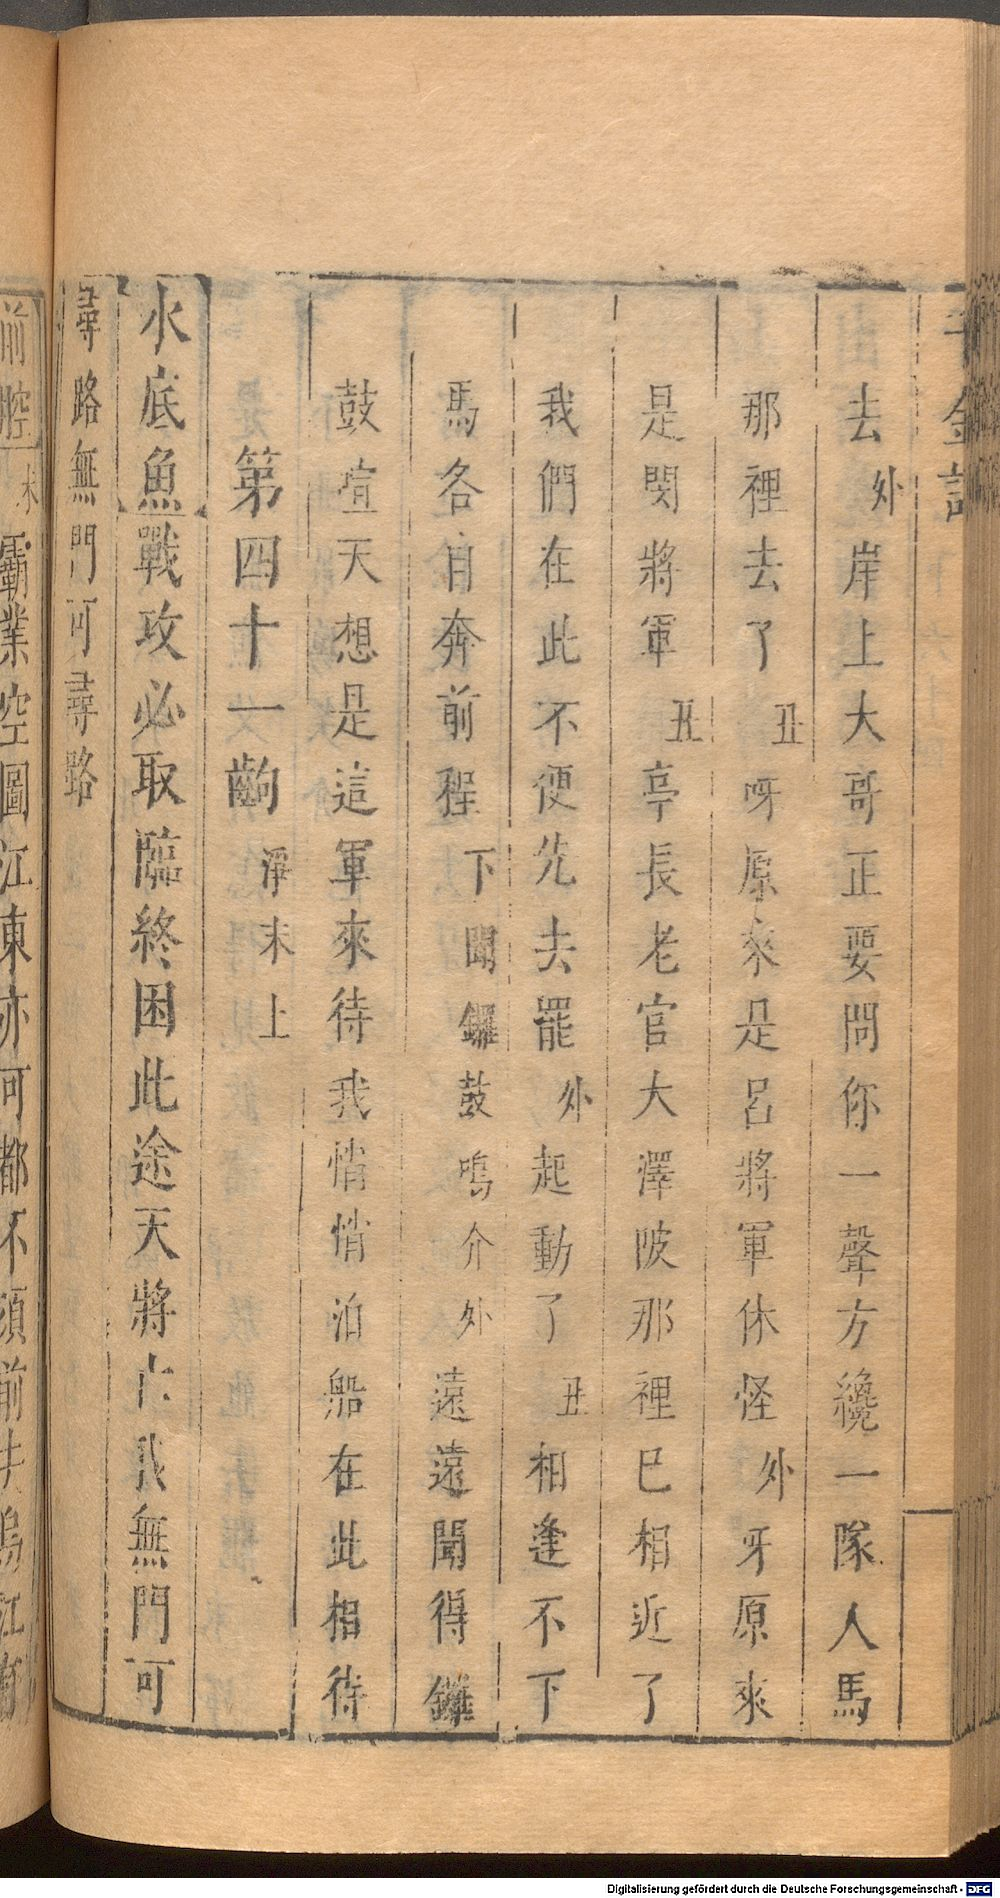 千金記
去外岸上大哥正要問你一聲方纔一隊人馬
那裡去了丑呀原來是呂將軍休怪外牙原來
是閔將軍丑亭長老官大澤陂那裡巳相近了
我們在此不便先去罷外起動了丑相逢不下
馬各自奔前程下聞鑼鼓鳴介外遠遠聞得鑼
鼓喧天想是這軍來待我悄悄泊船在此相待
第四十一齣淨末上
水底魚戰攻必取臨終困此途天將亡我無門可
尋路無門可尋路
前腔末霸業空圖江東亦可都不須前去烏江有
Digitalisierung gefördert durch die Deutsche Forschungsgemeinschaft - DFG